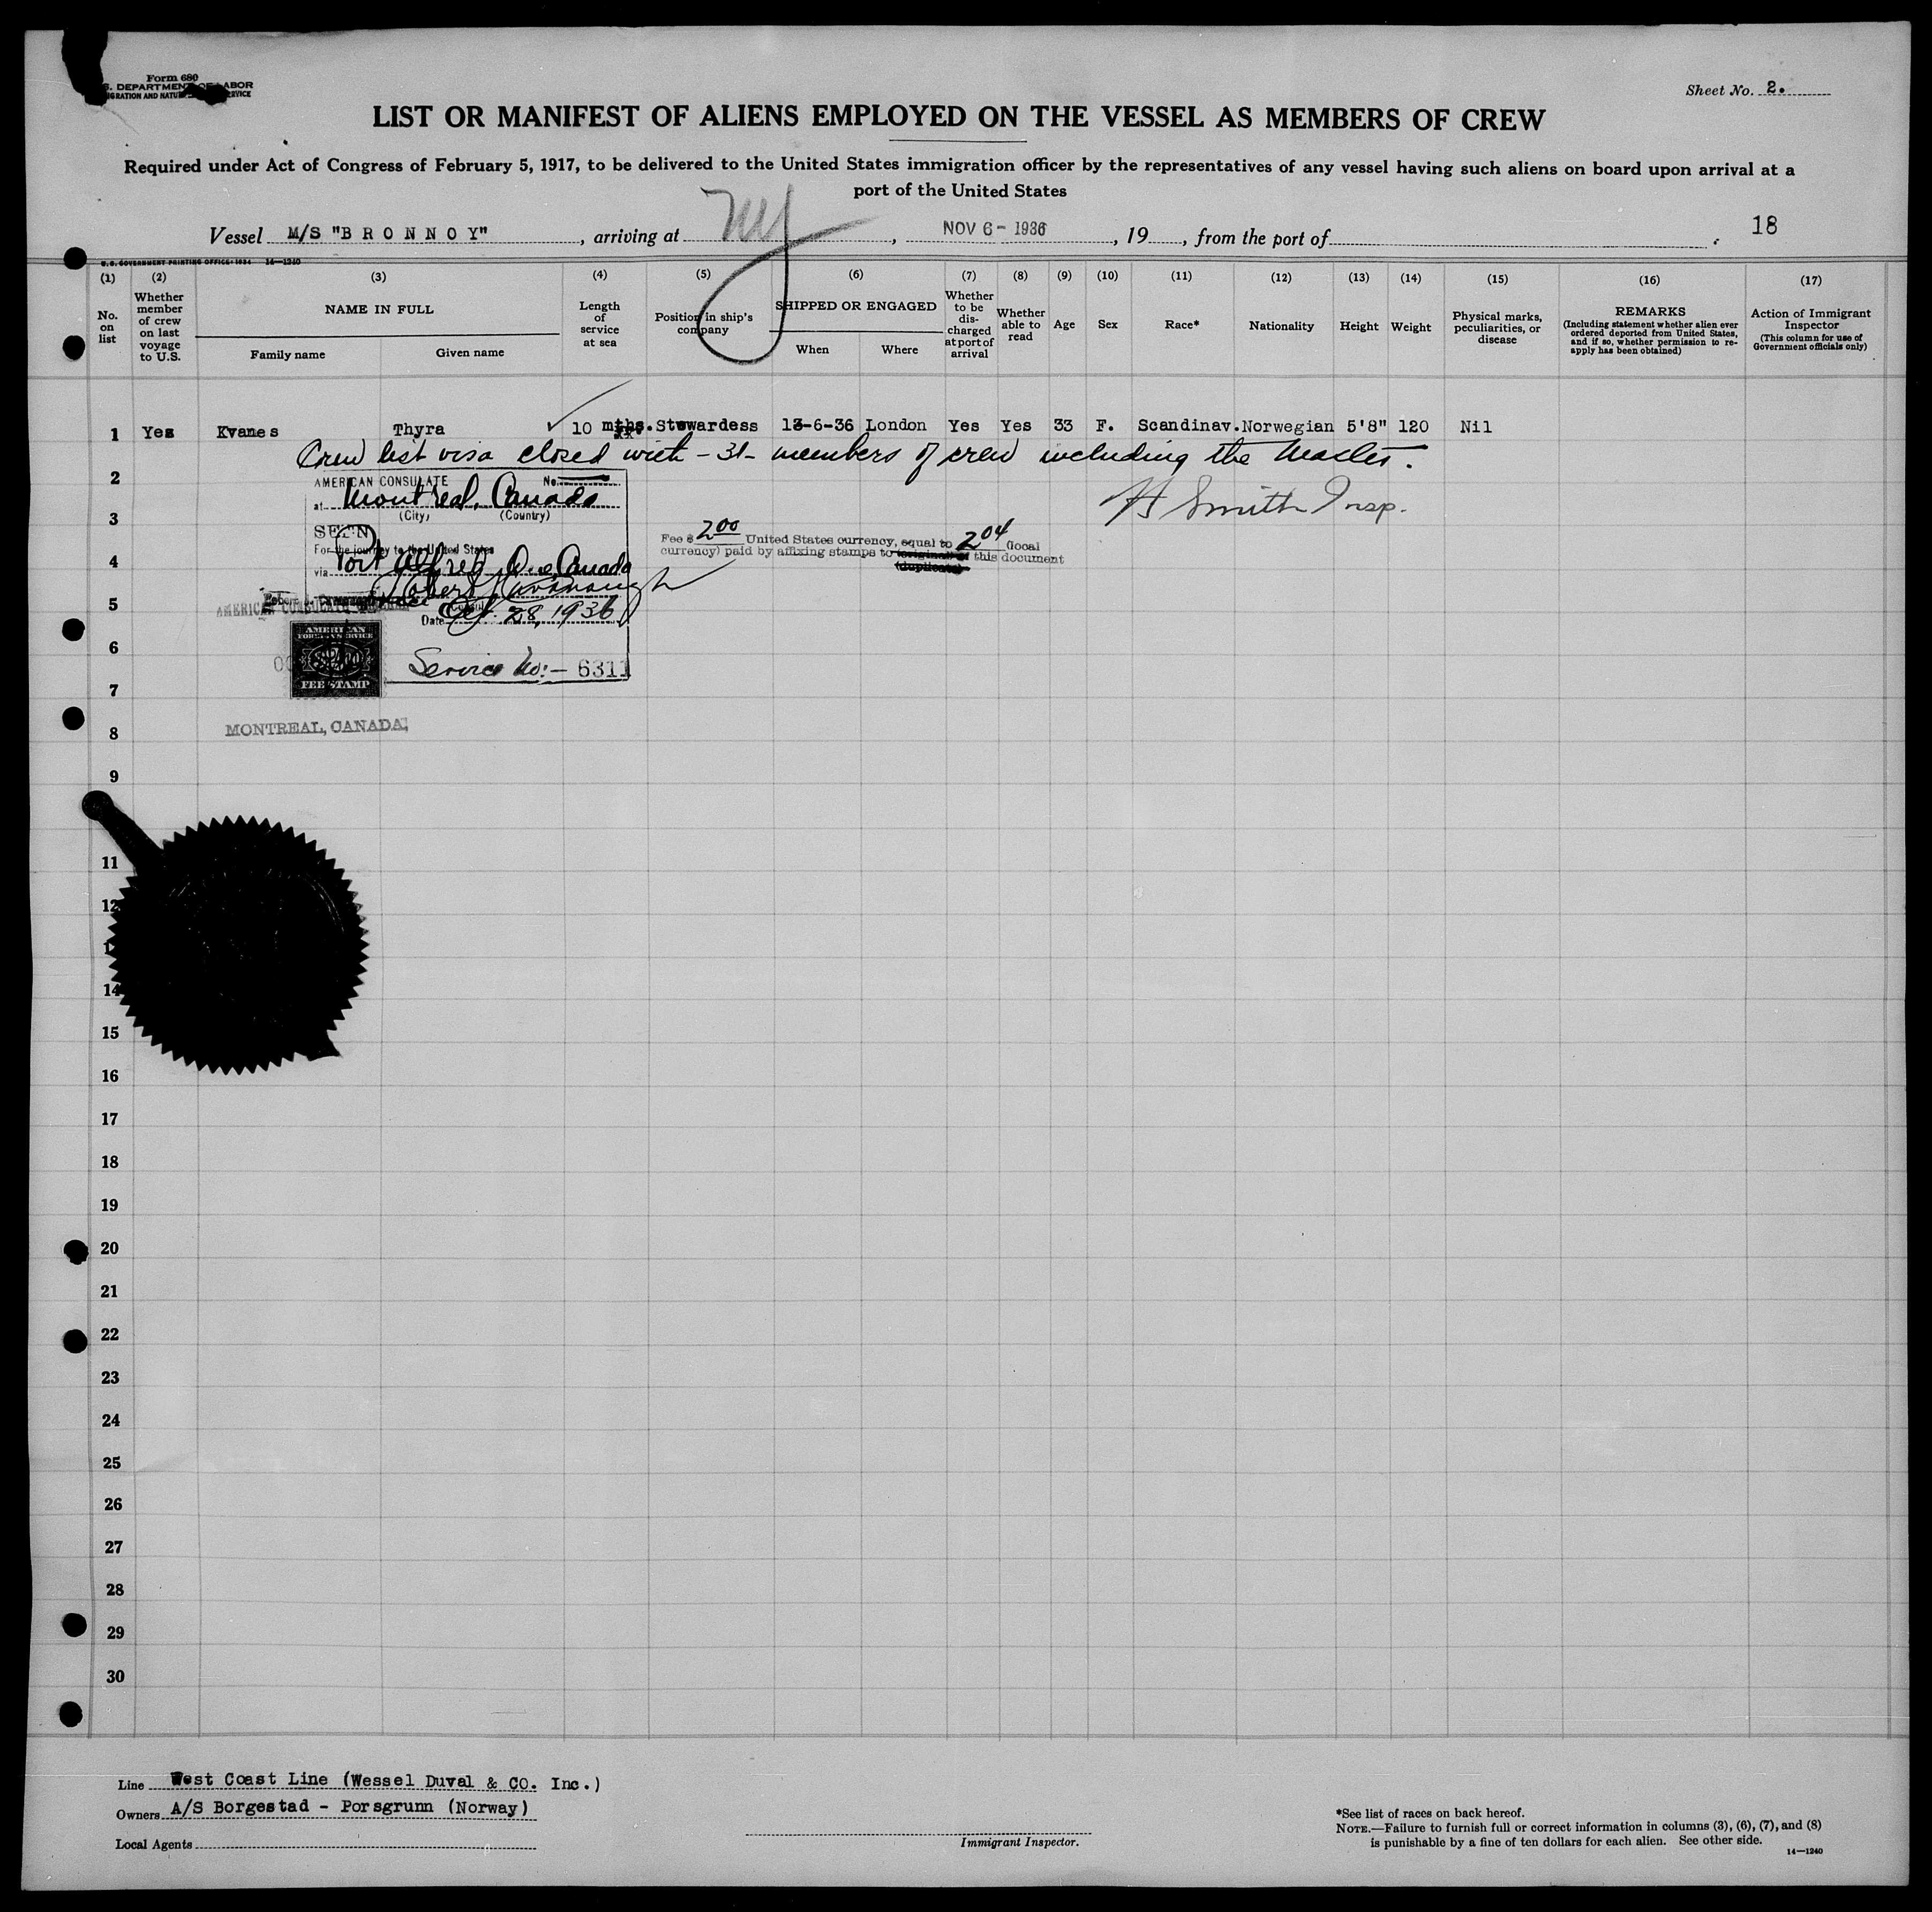 Form 680
S. DEPARTMENT OF LABOR
IGRATION AND NATU SERVICE
Sheet No. 2.
LIST OR MANIFEST OF ALIENS EMPLOYED ON THE VESSEL AS MEMBERS OF CREW
Required under Act of Congress of February 5, 1917, to be delivered to the United States immigration officer by the representatives of any vessel having such aliens on board upon arrival at a
port of the United States
Vessel M/S "BRONNOY", arriving at NY, NOV 6 - 1936, 19, from the port of . 18
U. S. GOVERNMENT PRINTING OFFICE: 1934 14—1240
(1) (2) (3) (4) (5) (6) (7) (8) (9) (10) (11) (12) (13) (14) (15) (16) (17)
No. on list
Whether member of crew on last voyage to U.S.
NAME IN FULL
Family name Given name
Length of service at sea
Position in ship's company
SHIPPED OR ENGAGED
When Where
Whether to be discharged at port of arrival
Whether able to read
Age
Sex
Race*
Nationality
Height
Weight
Physical marks, peculiarities, or disease
REMARKS
(Including statement whether alien ever ordered deported from United States, and if so, whether permission to re-apply has been obtained)
Action of Immigrant Inspector
(This column for use of Government officials only)
1 Yes Kvanes Thyra 10 mths. Stewardess 13-6-36 London Yes Yes 33 F. Scandinav. Norwegian 5'8" 120 Nil
Crew list visa closed with - 31 - members of crew including the Master.
2
AMERICAN CONSULATE No.
at Montreal, Canada
(City) (Country)
H Smith Insp.
3
SEEN
Fee $ 2.00 United States currency, equal to 2.04 (local
currency) paid by affixing stamps to original of this document
(duplicate)
For the journey to the United States
4
via Port Alfred, Que, Canada
Robert Cavanaugh
5
Date Oct. 28, 1936
6
AMERICAN
FOREIGN SERVICE
FEE STAMP
Service No:- 6311
7
MONTREAL, CANADA
8
9
11
12
14
15
16
17
18
19
20
21
22
23
24
25
26
27
28
29
30
Line West Coast Line (Wessel Duval & CO. Inc.)
Owners A/S Borgestad - Porsgrunn (Norway)
Local Agents
Immigrant Inspector.
*See list of races on back hereof.
NOTE.—Failure to furnish full or correct information in columns (3), (6), (7), and (8)
is punishable by a fine of ten dollars for each alien. See other side.
14—1240